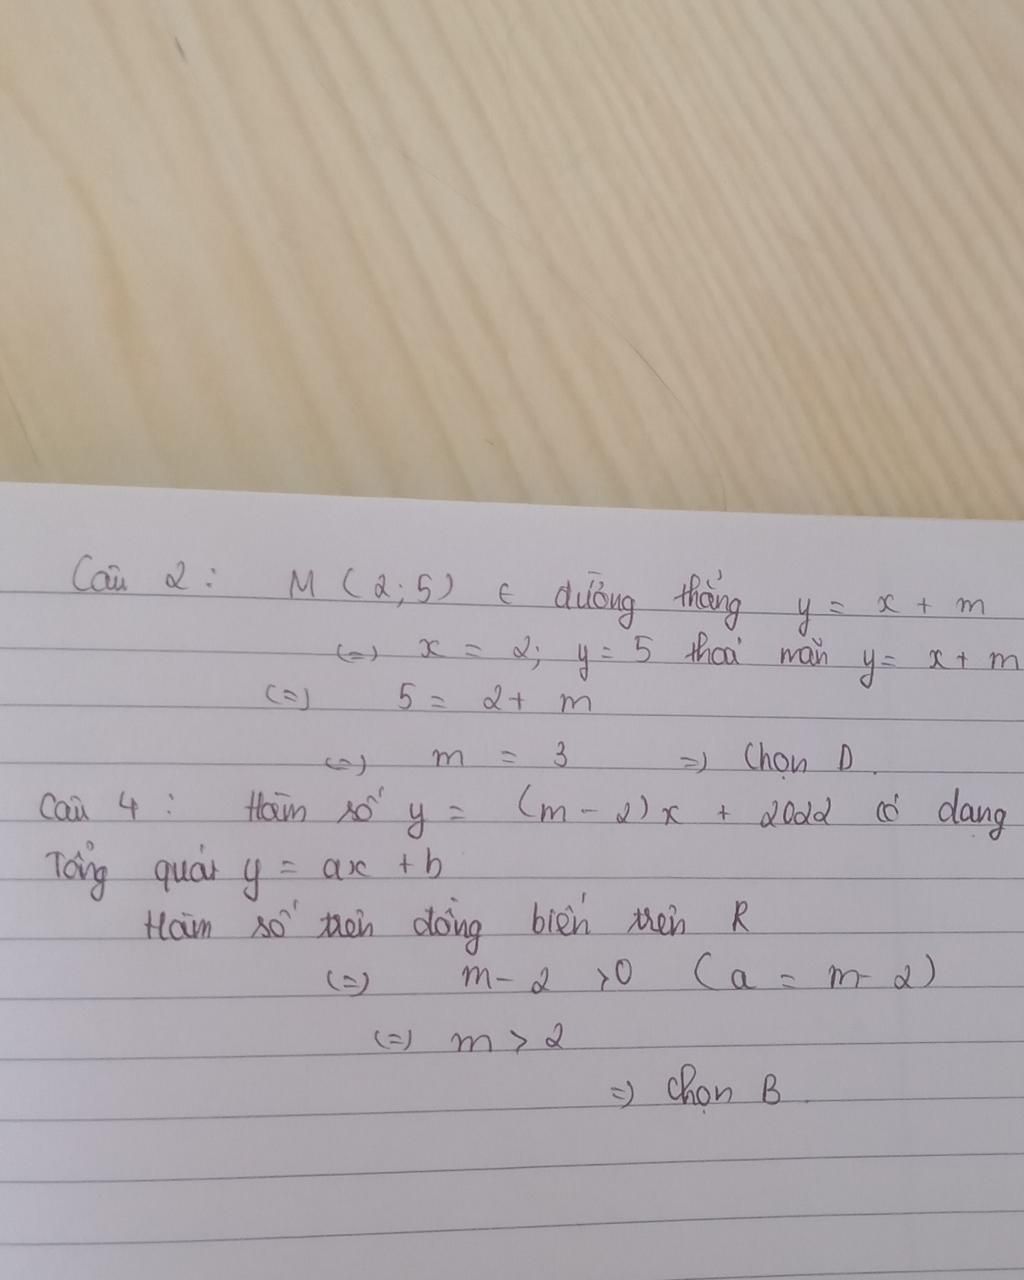 Câu 2: M (2; 5) ∈ đường thẳng y = x + m
(=) x = 2; y = 5 thoả mãn y = x + m
(=) 5 = 2 + m
(=) m = 3 =) Chọn D.
Câu 4: Hàm số y = (m - 2)x + 2022 có dạng
Tổng quát y = ax + b
Hàm số trên đồng biến trên R
(=) m - 2 > 0 (a = m - 2)
(=) m > 2
=) Chọn B.